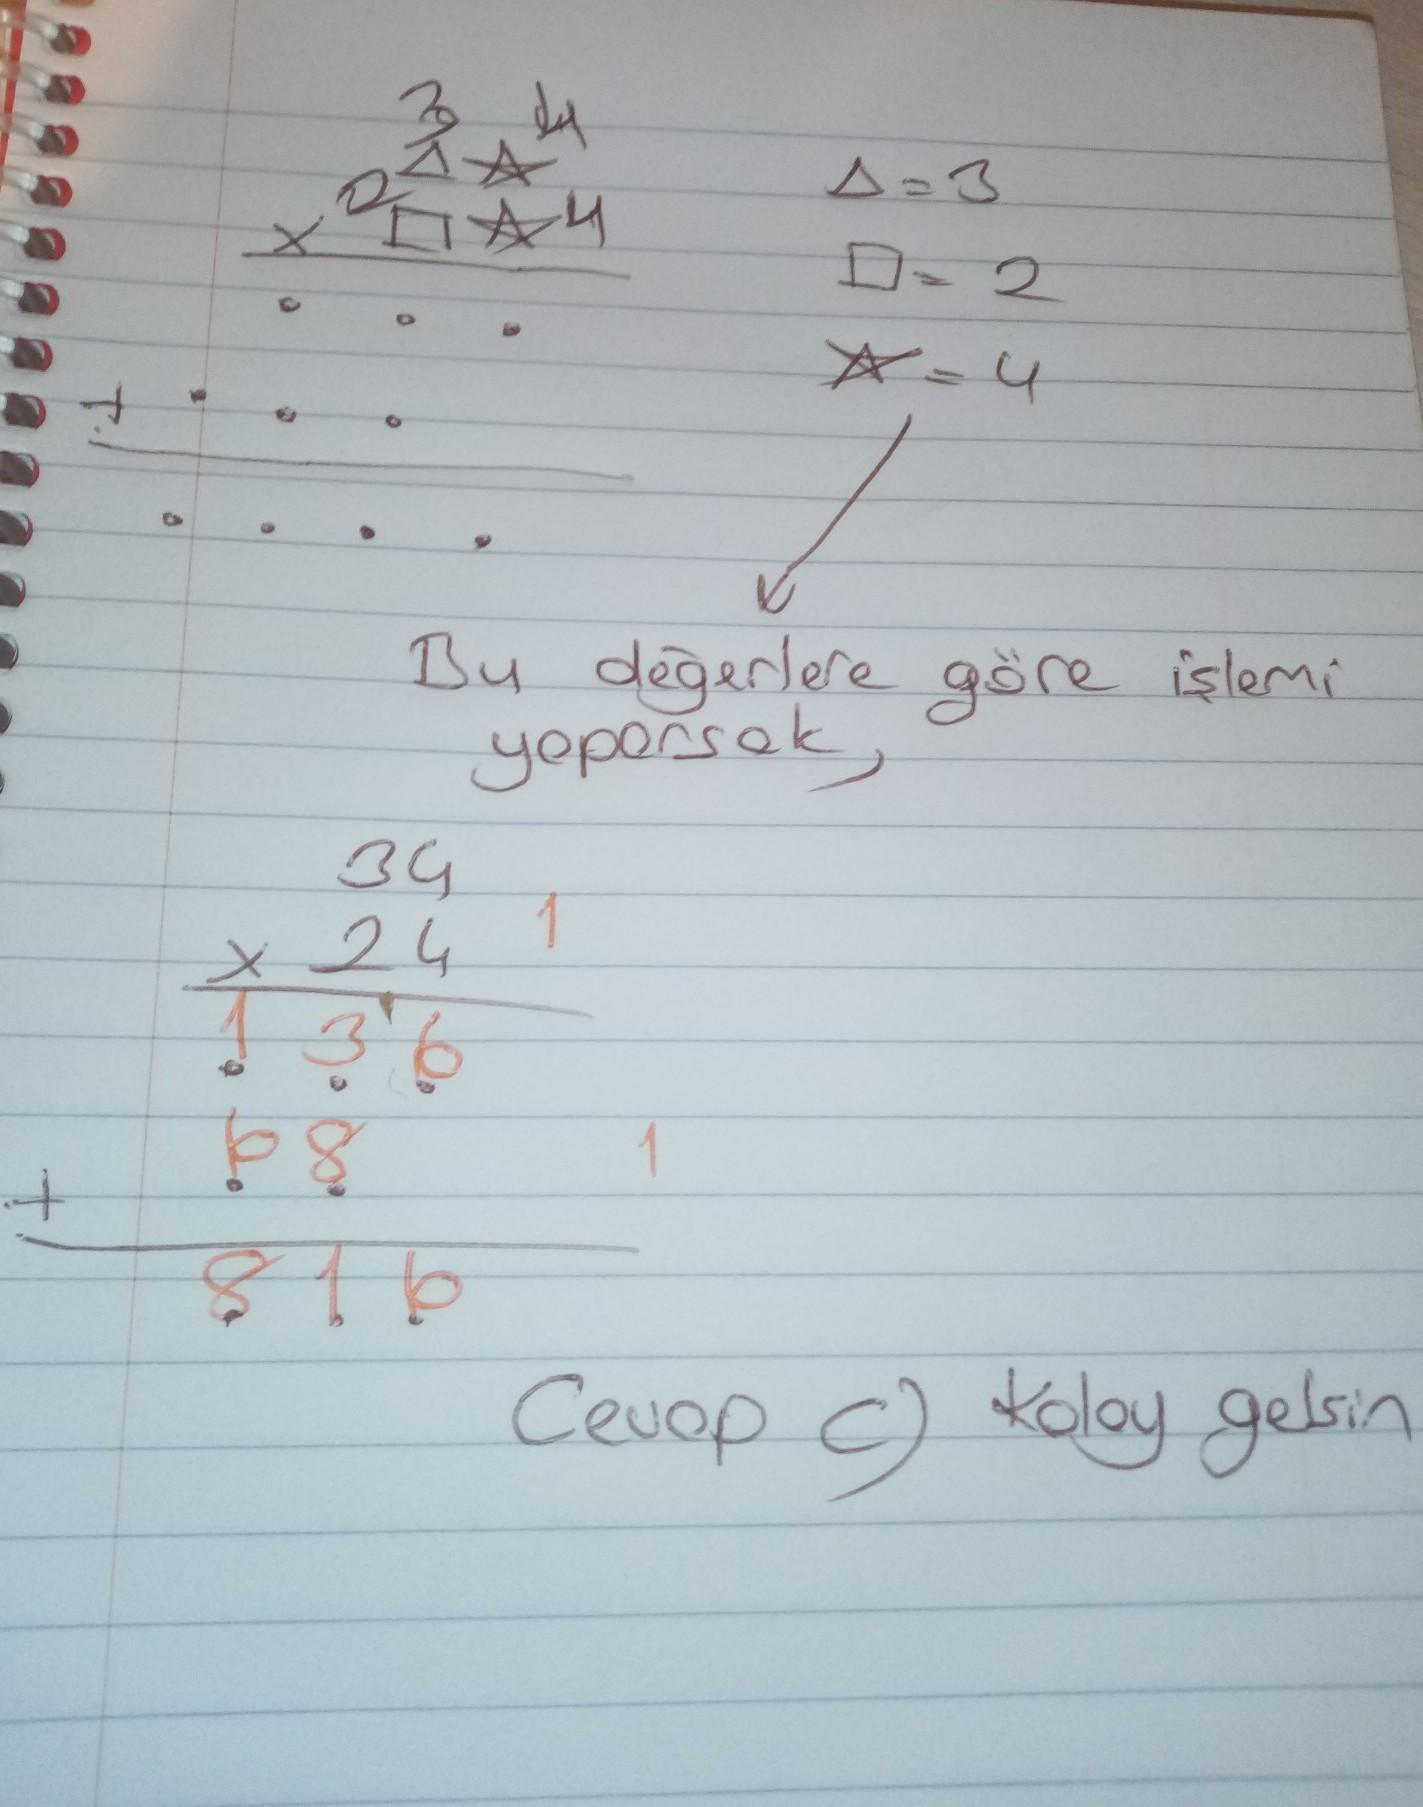 3 4
△ ☆ △ = 3
2
x □ ☆ 4
□ = 2
. . .
☆ = 4
+ . . .
. . . .
Bu değerlere göre işlemi
yaparsak,
34
x 24 1
1 3 6
6 8 1
+
8 1 6
Cevap C) Kolay gelsin